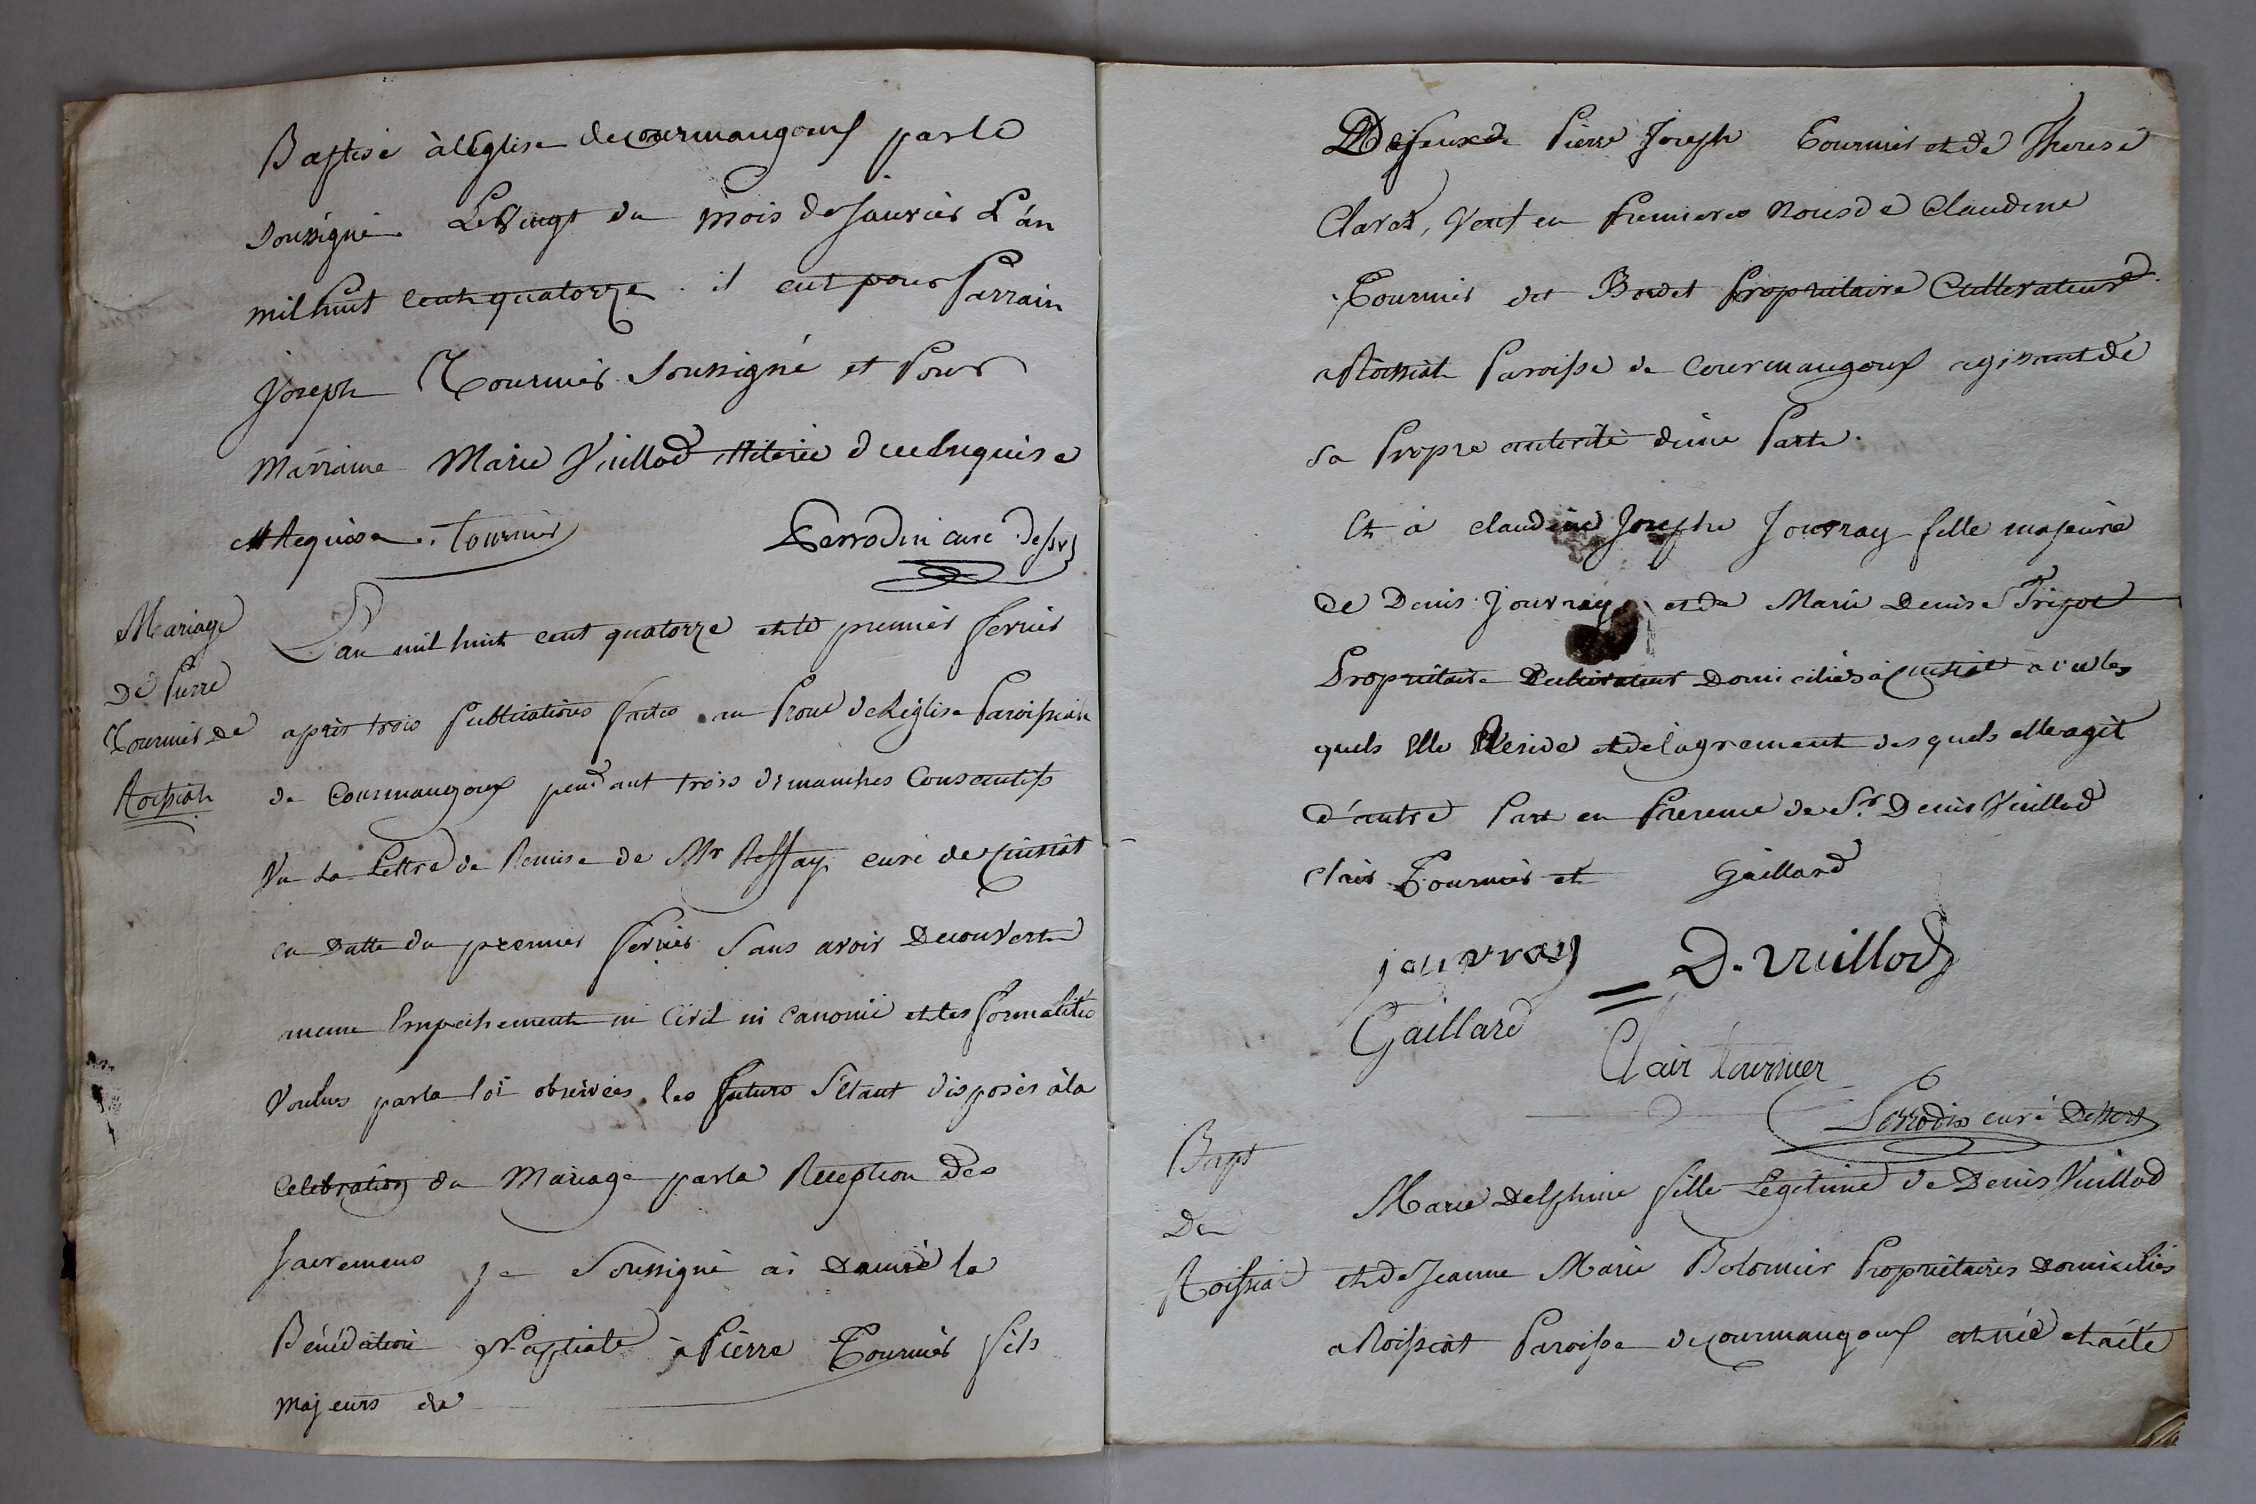 Baptisé à l'Eglise de courmangoux par le
soussigné Le Vingt du mois de Janvier L'an
mil huit cent quatorze. il eut pour Parrain
Joseph Tournier Soussigné et Pour
Marraine Marie Vuillod illiterée de ce enquise
et Requise. Tournier Perrodin curé
Mariage
De Pierre
Tournier De
Roissiat
L'an mil huit cent quatorze et le premier fevrier
après trois publications faites au Prone de L'église Paroissiale
de Courmangoux pendant trois dimanches Consecutifs
Vu La Lettre de Remise de Mr Reffay curé de Cuisiat
en Datte du premier fevrier Sans avoir Decouvert
aucun Empechement ni Civil ni Canonic et les formalités
Voulues par la loi observées. les futurs S'étant disposés à la
Celebration du Mariage par la Reception des
Sacremens je Soussigné ai Donné la
Bénédiction Nuptiale à Pierre Tournier fils
majeurs de
Defeux de Pierre Joseph Tournier et de Therese
Claret, Veuf en Premieres Noces de Claudine
Tournier dit Bordet Propriétaire Cultivateur
a Roissiat Paroisse de Courmangoux agissant de
sa Propre autorité d'une Part.
Et à claudine Josephe Jouvray fille majeure
de Denis Jouvray et de Marie Denise
Propriétaire Cultivateur Domiciliés à Cuisiat avec les
quels Elle Reside et de l'agrement des quels elle agit
d'autre Part en Presence de Sr. Denis Vuillod
Clair Tournier et Gaillard
jouvray D. Vuillod
Gaillard
Clair tournier
Perrodin curé Dessert
Bapt
De
Roissiat
Marie Delphine fille Legitime de Denis Vuillod
et de Jeanne Marie Bolomier Propriétaires Domiciliés
a Roissiat Paroisse de courmangoux est née et a été